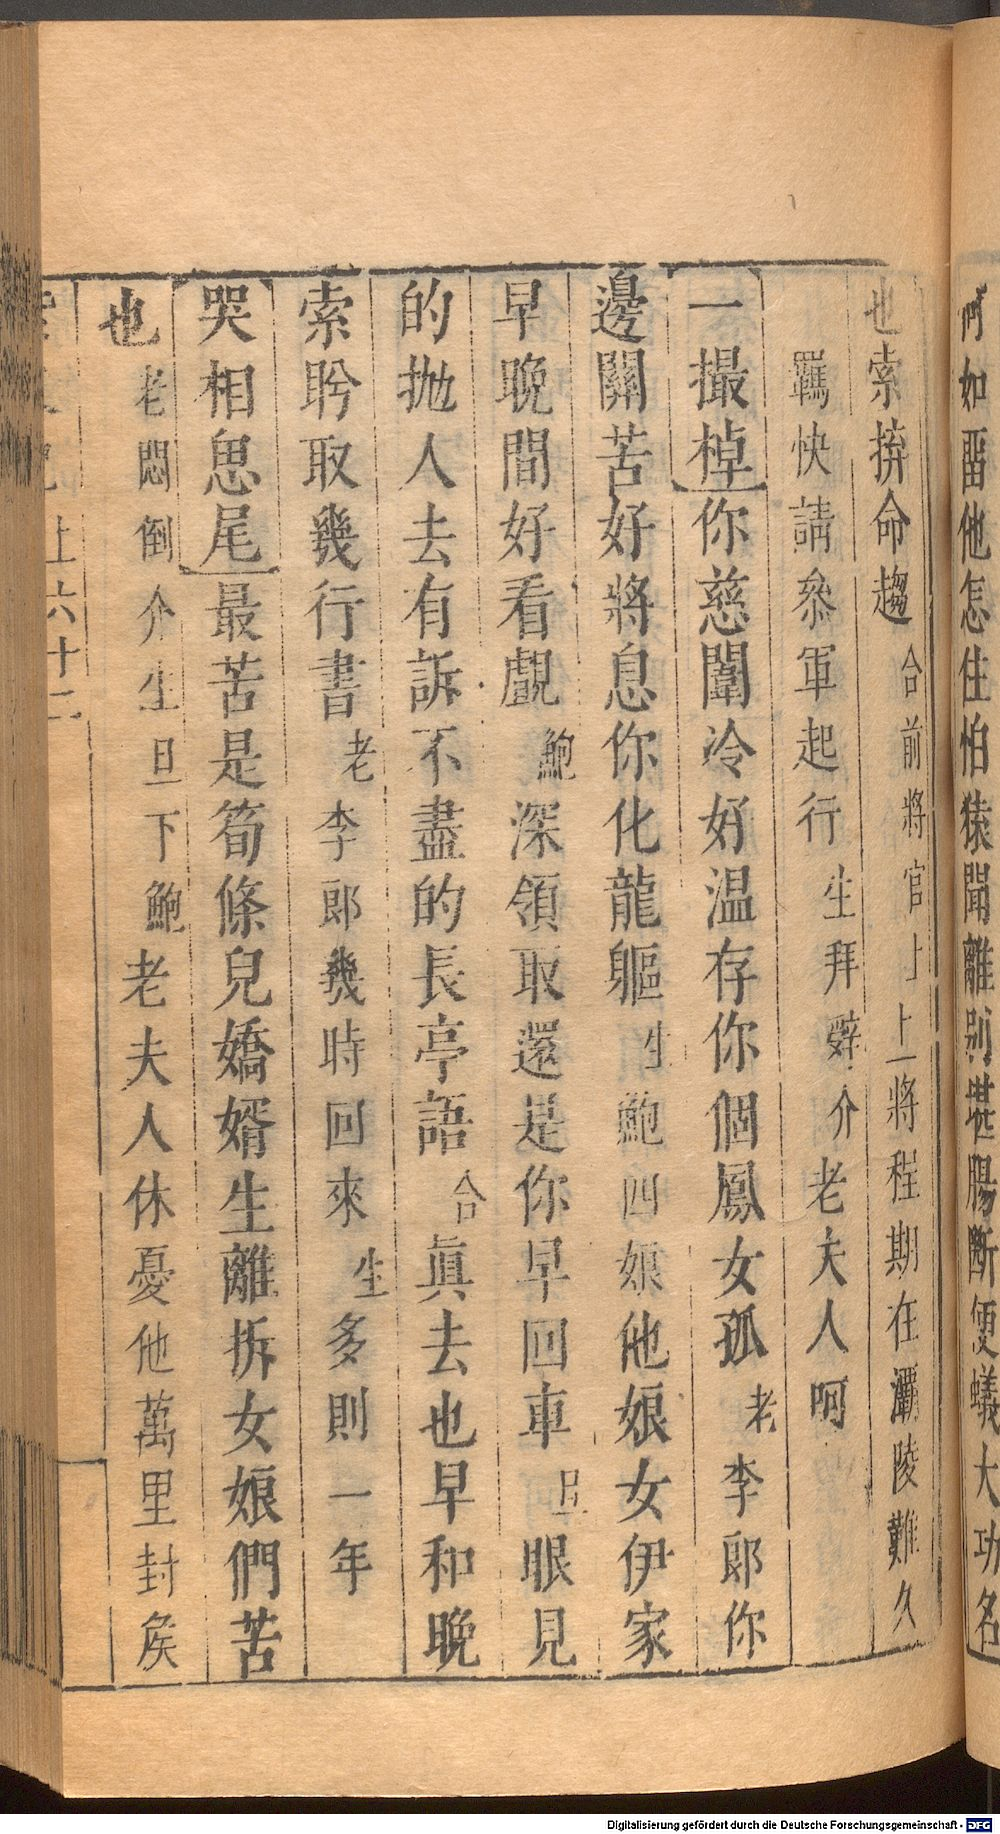 阿如畱他怎住怕猿聞離別堪腸斷便蟻大功名
也索拚命趨合前將官上上將程期在灞陵難久
羈快請叅軍起行生拜辭介老夫人呵
一撮棹你慈闈冷好温存你個鳳女孤老李郎你
邊關苦好將息你化龍軀生鮑四娘他娘女伊家
早晚間好看覷鮑深領取還是你早回車旦眼見
的抛人去有訴不盡的長亭語合眞去也早和晚
索盻取幾行書老李郎幾時回來生多則一年
哭相思尾最苦是筍條兒嬌婿生離拆女娘們苦
也老悶倒介生旦下鮑老夫人休憂他萬里封矦
上六十二
Digitalisierung gefördert durch die Deutsche Forschungsgemeinschaft - DFG